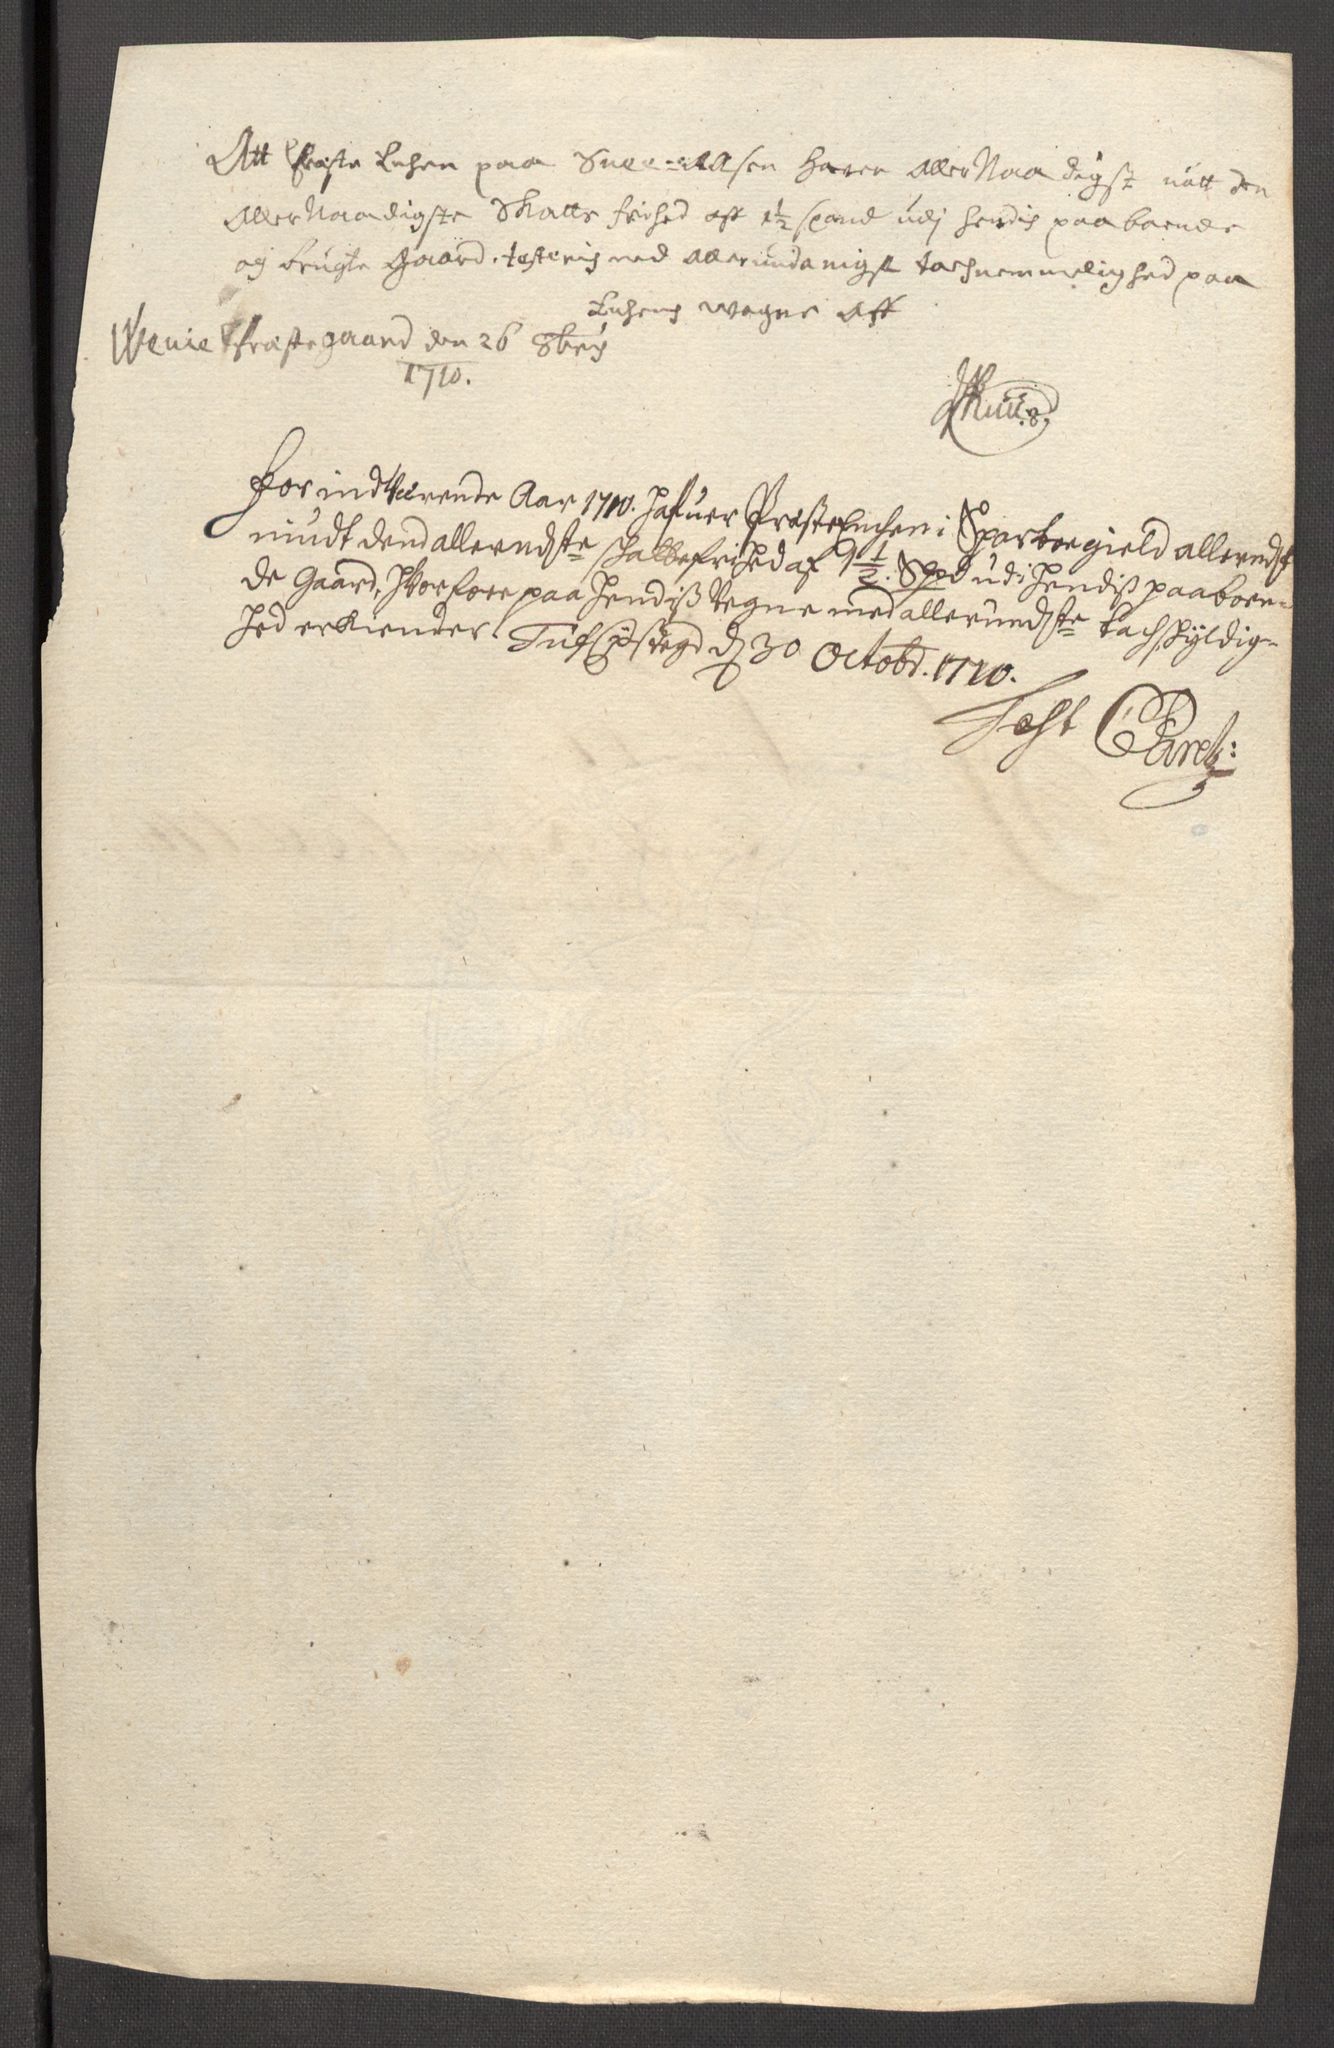 Att Præste Enken paa Snee-Aasen haver aller Naadigst nött den
aller Naadigste Skatte frihed aff 1½ spand udj hendis paaboende
og brugte Gaard. testeris med allerundanigst tachnemmelighed paa
Enkens wegne Aff
Præstegaard den 26 8bris
1710.
For indtværende Aar 1710. hafuer Præsteenchen i Sparboegield allerndst
niudt dend allerndste schattefrihed af 1½ Spd udi hendiß paaboen-
de Gaard, hvorfore paa hendiß Vegne med allerundste tachschyldig-
hed erkiender d 30 Octobr. 1710.
Test